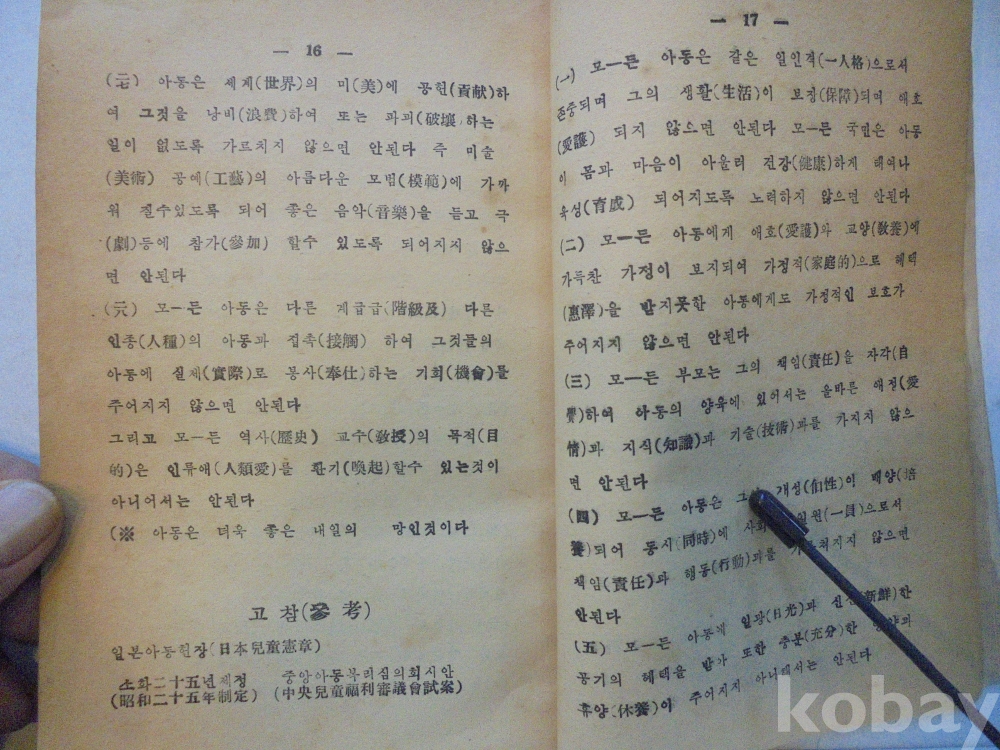 — 16 —
아동은 세계(世界)의 미(美)에 공헌(貢献)하
여 그것을 낭비(浪費)하여 또는 파괴(破壞)하는
일이 없도록 가르치지 않으면 안된다 즉 미술
(美術) 공예(工藝)의 아름다운 모범(模範)에 가까
워 질수있도록 되어 좋은 음악(音樂)을 듣고 극
(劇)등에 참가(參加) 할수 있도록 되어지지 않으
면 안된다
모—든 아동은 다른 계급급(階級及) 다른
인종(人種)의 아동과 접촉(接觸) 하여 그것들의
아동에 실제(實際)로 봉사(奉仕)하는 기회(機會)를
주어지지 않으면 안된다
그리고 모—든 역사(歷史) 교수(敎授)의 목적(目
的)은 인류애(人類愛)를 환기(喚起)할수 있는것이
아니어서는 안된다
(※ 아동은 더욱 좋은 내일의 망인것이다
고 참(參 考)
일본아동헌장(日本兒童憲章)
소화二十五년제정 중앙아동복리심의회시안
(昭和二十五年制定) (中央兒童福利審議會試案)
— 17 —
(一) 모—든 아동은 같은 일인격(一人格)으로서
존중되며 그의 생활(生活)이 보장(保障)되여 애호
(愛護) 되지 않으면 안된다 모—든 국민은 아동
이 몸과 마음이 아울러 건강(健康)하게 태어나
육성(育成) 되어지도록 노력하지 않으면 안된다
(二) 모—든 아동에게 애호(愛護)와 교양(敎養)에
가득찬 가정이 보지되여 가정적(家庭的)으로 혜택
(惠澤)을 받지못한 아동에게도 가정적인 보호가
주어지지 않으면 안된다
(三) 모—든 부모는 그의 책임(責任)을 자각(自
覺)하여 아동의 양육에 있어서는 올바른 애정(愛
情)과 지식(知識)과 기술(技術)과를 가지지 않으
면 안된다
(四) 모—든 아동은 개성(個性)이 배양(培
養)되어 동시(同時)에 일원(一員)으로서
책임(責任)과 행동(行動)과를 않으면
안된다
(五) 모—든 아동에 일광(日光)과 신선(新鮮)한
공기의 혜택을 받아 또한 충분(充分)한
휴양(休養)이 주어지지 아니해서는 안된다
kobay